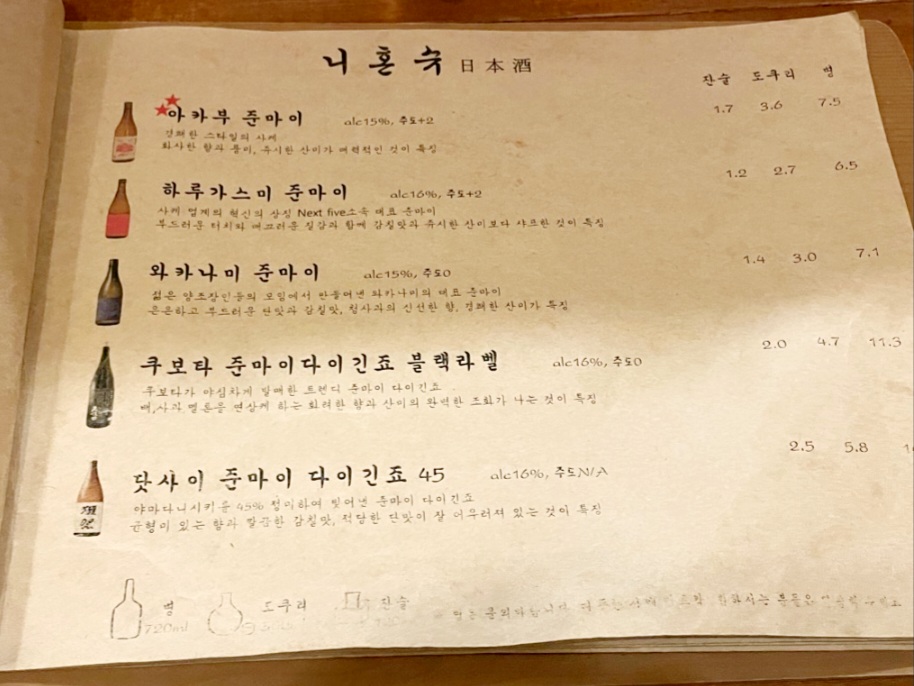 니혼슈 日本酒
잔술 도쿠리 병
아카부 준마이 alc15%, 주도+2 1.7 3.6 7.5
경쾌한 스타일의 사케
화사한 향과 풍미, 쥬시한 산미가 매력적인 것이 특징
하루가스미 준마이 alc16%, 주도+2 1.2 2.7 6.5
사케 업계의 혁신의 상징 Next five소속 대표 준마이
부드러운 터치와 매끄러운 질감과 함께 감칠맛과 쥬시한 산미보다 샤프한 것이 특징
와카나미 준마이 alc15%, 주도0 1.4 3.0 7.1
젊은 양조장인들의 모임에서 만들어낸 와카나미의 대표 준마이
은은하고 부드러운 단맛과 감칠맛, 청사과의 신선한 향, 경쾌한 산미가 특징
쿠보타 준마이다이긴죠 블랙라벨 alc16%, 주도0 2.0 4.7 11.3
쿠보타가 야심차게 발매한 트렌디 준마이 다이긴죠
배,사과 멜론을 연상케 하는 화려한 향과 산미의 완벽한 조화가 나는 것이 특징
닷사이 준마이 다이긴죠 45 alc16%, 주도N/A 2.5 5.8
야마다니시키를 45% 정미하여 빚어낸 준마이 다이긴죠
균형이 있는 향과 깔끔한 감칠맛, 적당한 단맛이 잘 어우러져 있는 것이 특징
병 도쿠리 잔술
720ml